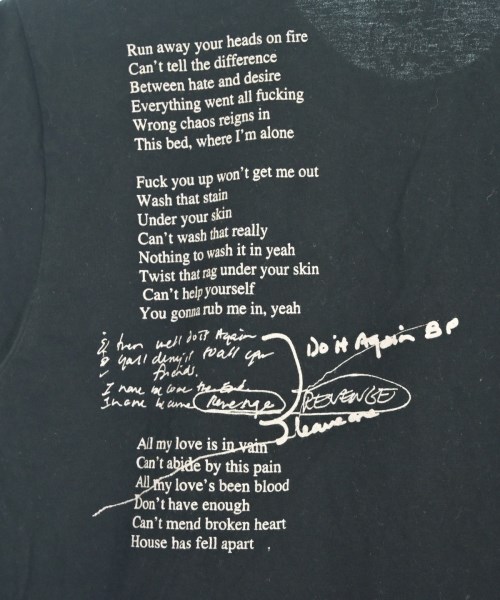 Run away your heads on fire
Can't tell the difference
Between hate and desire
Everything went all fucking
Wrong chaos reigns in
This bed, where I'm alone
Fuck you up won't get me out
Wash that stain
Under your skin
Can't wash that really
Nothing to wash it in yeah
Twist that rag under your skin
Can't help yourself
You gonna rub me in, yeah
& then we'll do it Again
Do it Again BP
yall deny it to all yr
friends.
I
the
I became Revenge
REVENGE
leave one
All my love is in vain
Can't abide by this pain
All my love's been blood
Don't have enough
Can't mend broken heart
House has fell apart